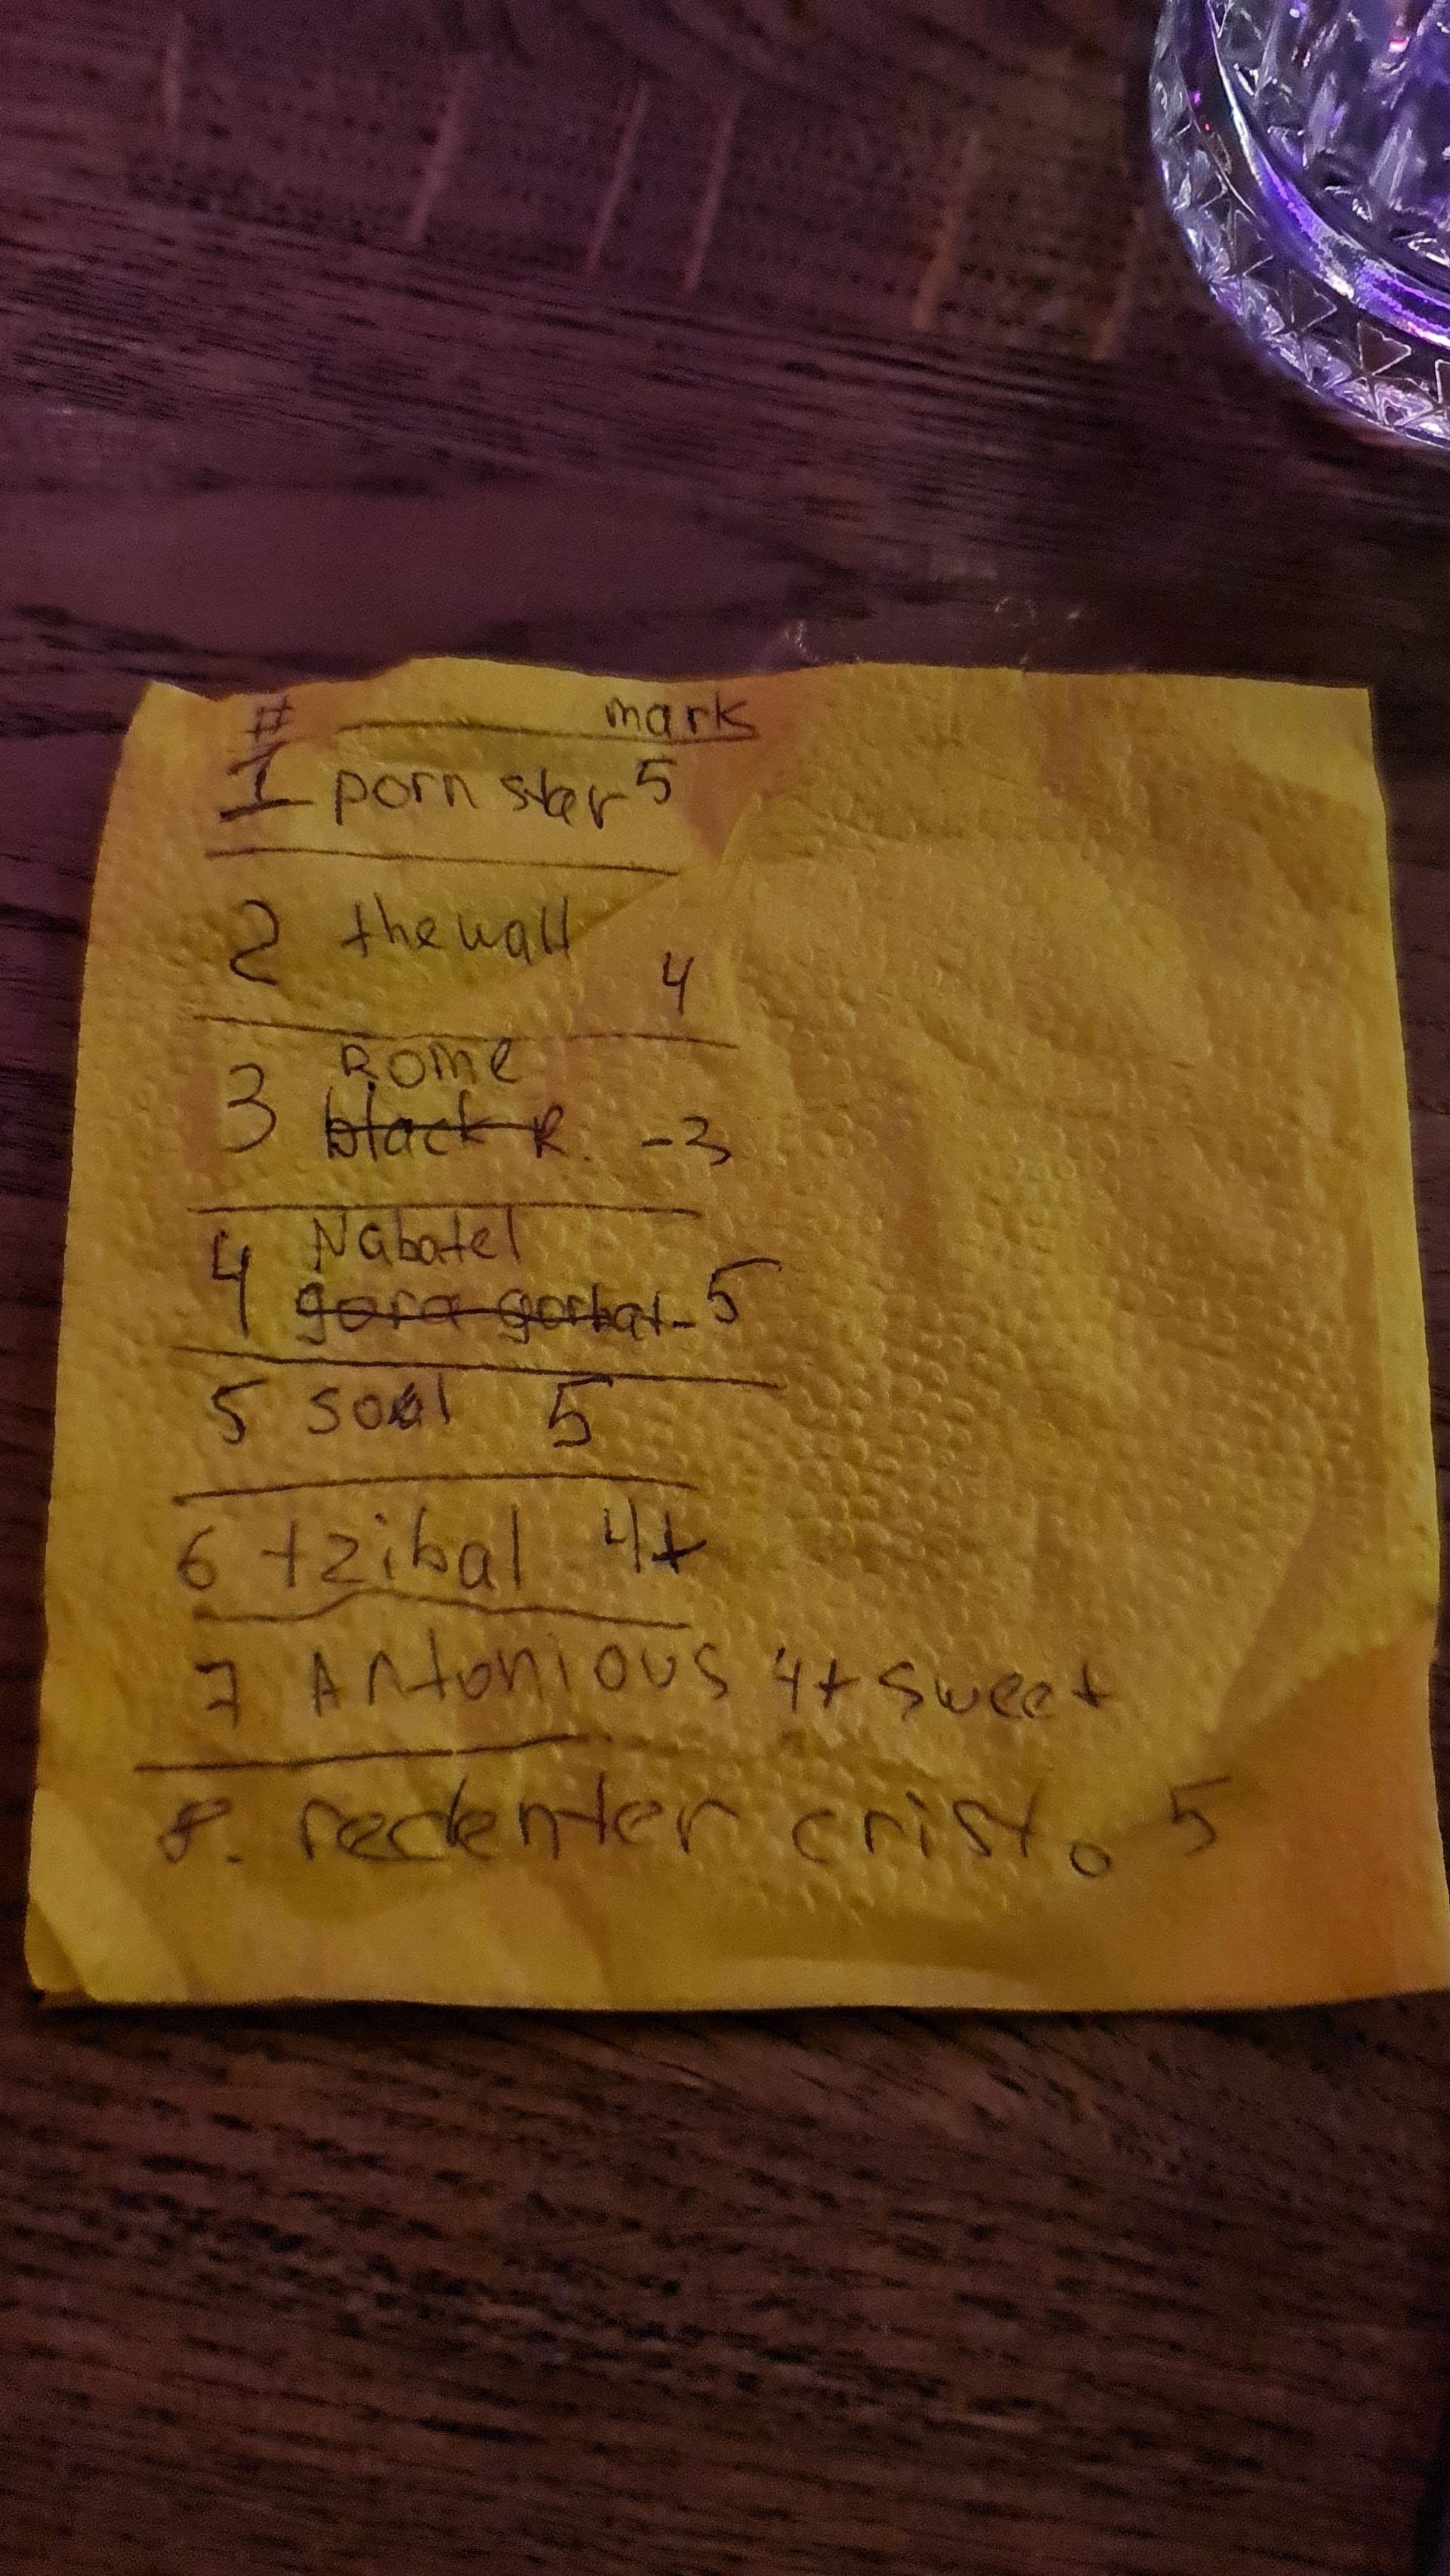 # mark
1 porn ster 5
2 the wall 4
Rome
3 black R. -3
Nabatel
4 gora gorbat- 5
5 soul 5
6 tzibal 4+
7 Antonious 4+ sweet
8. redenter cristo 5